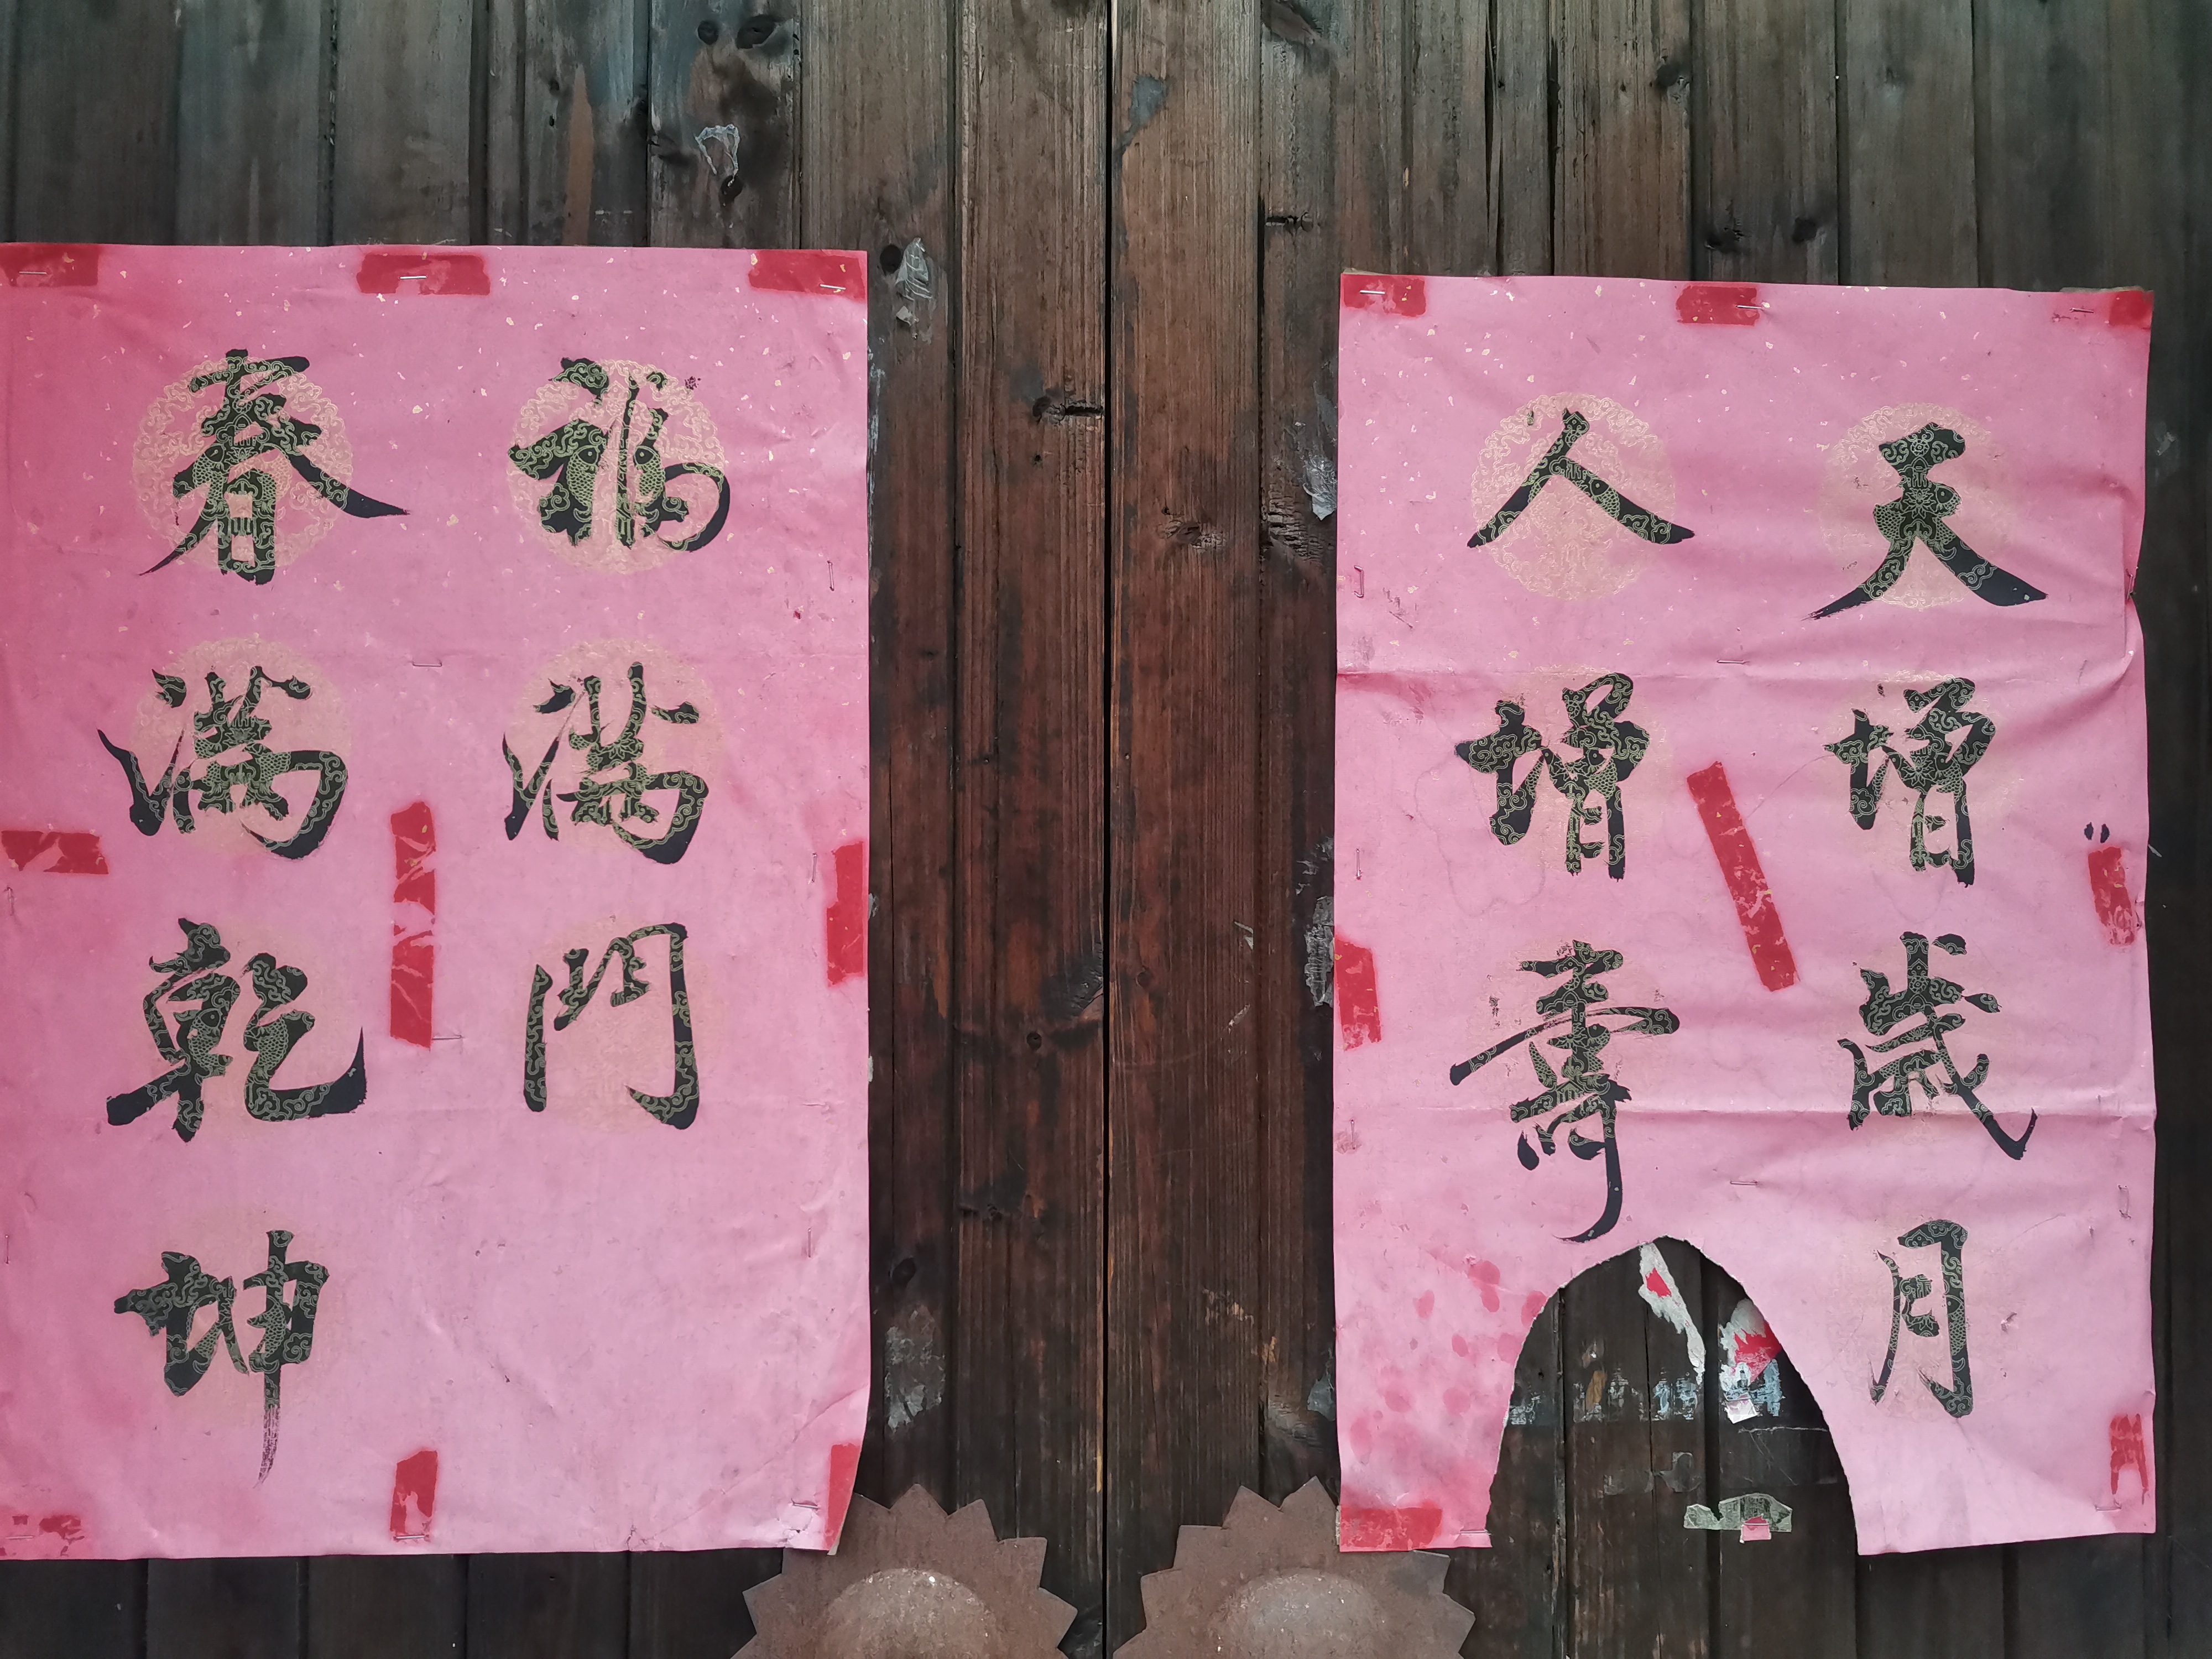 天增歲月
人增壽
福滿門
春滿乾坤